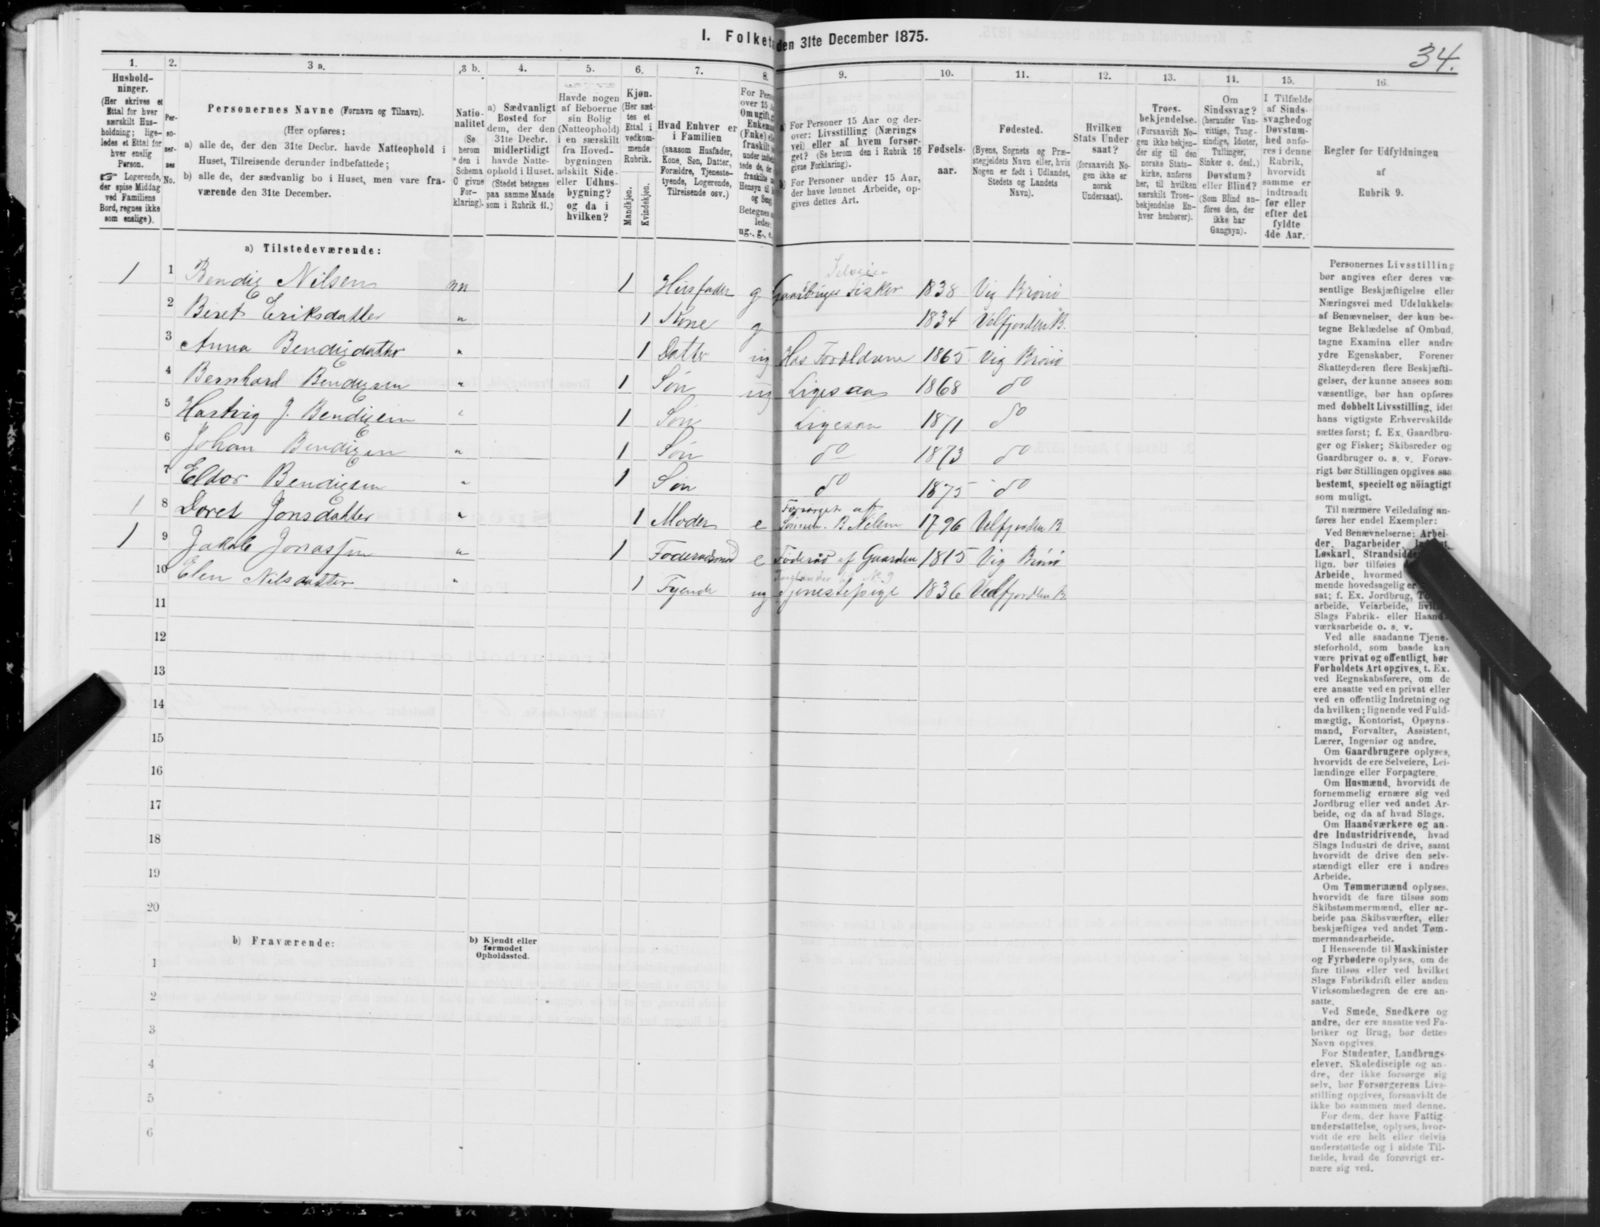 I. Folket den 31te December 1875.
34.
1. 2. 3 a. 3 b. 4. 5. 6. 7. 8. 9. 10. 11. 12. 13. 14. 15. 16.
Hushold-
ninger.
(Her skrives et
Ettal for hver
særskilt Hus-
holdning; lige-
ledes et Ettal for
hver enslig
Person.
☞ Logerende,
der spise Middag
ved Familiens
Bord, regnes ikke
som enslige).
Per-
so-
ner-
nes
No.
Personernes Navne (Fornavn og Tilnavn).
(Her opføres:
a) alle de, der den 31te Decbr. havde Natteophold i
Huset, Tilreisende derunder indbefattede;
b) alle de, der sædvanlig bo i Huset, men vare fra-
værende den 31te December.
Natio-
nalitet
(Se
herom
den i
Schema
O givne
For-
klaring).
a) Sædvanligt
Bosted for
dem, der den
31te Decbr.
midlertidigt
havde Natte-
ophold i Huset.
(Stedet betegnes
paa samme Maade
som i Rubrik 11.)
Havde nogen
af Beboerne
sin Bolig
(Natteophold)
i en særskilt
fra Hoved-
bygningen
adskilt Side-
eller Udhus-
bygning?
og da i
hvilken?
Kjøn.
(Her sæt-
tes et
Ettal i
vedkom-
mende
Rubrik.
Mandkjøn.
Kvindekjøn.
Hvad Enhver er
i Familien
(saasom Husfader,
Kone, Søn, Datter,
Forældre, Tjeneste-
tyende, Logerende,
Tilreisende osv.)
For Personer 15 Aar og der-
over: Livsstilling (Nærings
vei) eller af hvem forsør-
get? (Se herom den i Rubrik 16
givne Forklaring).
For Personer under 15 Aar,
der have lønnet Arbeide, op-
gives dettes Art.
Fødsels-
aar.
Fødested.
(Byens, Sognets og Præ-
stegjeldets Navn eller, hvis
Nogen er født i Udlandet,
Stedets og Landets
Navn).
Hvilken
Stats Under
saat?
(forsaavidt No-
gen ikke er
norsk
Undersaat).
Troes-
bekjendelse.
(Forsaavidt No-
gen ikke bekjen-
der sig til den
norske Stats-
kirke, anføres
her, til hvilken
særskilt Troes-
bekjendelse En-
hver henhører).
Om
Sindssvag?
(herunder Van-
vittige, Tung-
sindige, Idioter,
Tullinger,
Sinker o. desl.)
Døvstum?
eller Blind?
(Som Blind an-
føres den, der
ikke har
Gangsyn).
I Tilfælde
af Sinds-
svaghed og
Døvstum-
hed anfø-
res i denne
Rubrik,
hvorvidt
samme er
indtraadt
før eller
efter det
fyldte
4de Aar.
Regler for Udfyldningen
af
Rubrik 9.
a) Tilstedeværende:
1 1 Bendig Nilsen nn 1 Husfader g Selveier Gaardbruger Fisker 1838 Vig Brønø
2 Beret Eriksdatter " 1 Kone g 1834 Velfjorden B.
3 Anna Bendigdatter " 1 Datter ug Hos Forældrene 1865 Vig Brønø
4 Bernhard Bendigsen " 1 Søn ug Ligesaa 1868 do
5 Hartvig J. Bendigsen " 1 Søn Ligesaa 1871 do
6 Johan Bendigsen " 1 Søn do 1873 do
7 Eldor Bendigsen " 1 Søn do 1875 do
1 8 Doret Jonsdatter " 1 Moder e Forsørget af Sønnen B Nilsen 1796 Velfjorden B
1 9 Jakob Jonassen " 1 Foderaadsmand e Föderåd af Gaarden 1815 Vig Brønø
10 Elen Nilsdatter " 1 Tyende ug Tjenestepige 1836 Velfjorden B.
11
12
13
14
15
16
17
18
19
20
b) Fraværende:
b) Kjendt eller
formodet
Opholdssted.
1
2
3
4
5
6
Personernes Livsstilling
bør angives efter deres væ-
sentlige Beskjæftigelse eller
Næringsvei med Udelukkelse
af Benævnelser, der kun be-
tegne Beklædelse af Ombud,
tagne Examina eller andre
ydre Egenskaber. Forener
Skatteyderen flere Beskjæfti-
gelser, der kunne ansees som
væsentlige, bør han opføres
med dobbelt Livsstilling, idet
hans vigtigste Erhvervskilde
sættes først; f. Ex. Gaardbru-
ger og Fisker; Skibsreder og
Gaardbruger o. s. v. Forøv-
rigt bør Stillingen opgives saa
bestemt, specielt og nöiagtigt
som muligt.
Til nærmere Veiledning an-
føres her endel Exempler:
Ved Benævnelserne: Arbei-
der, Dagarbeider,
Løskarl, Strandsidder
lign. bør tilføies
Arbeide, hvormed
mende hovedsagelig er
sat; f. Ex. Jordbrug,
arbeide, Veiarbeide,
Slags Fabrik- eller Haand-
værksarbeide o. s. v.
Ved alle saadanne Tjene-
steforhold, som baade kan
være privat og offentligt, bør
Forholdets Art opgives, t. Ex.
ved Regnskabsførere, om de
ere ansatte ved en privat eller
ved en offentlig Indretning og
da hvilken; lignende ved Fuld-
mægtig, Kontorist, Opsyns-
mand, Forvalter, Assistent,
Lærer, Ingeniør og andre.
Om Gaardbrugere oplyses,
hvorvidt de ere Selveiere, Lei-
lændinge eller Forpagtere.
Om Husmænd, hvorvidt de
fornemmelig ernære sig ved
Jordbrug eller ved andet Ar-
beide, og da af hvad Slags.
Om Haandværkere og an-
dre Industridrivende, hvad
Slags Industri de drive, samt
hvorvidt de drive den selv-
stændigt eller ere i andres
Arbeide.
Om Tømmermænd oplyses,
hvorvidt de fare tilsøs som
Skibstømmermænd, eller ar-
beide paa Skibsværfter, eller
beskjæftiges ved andet Tøm-
mermandsarbeide.
I Henseende til Maskinister
og Fyrbødere oplyses, om de
fare tilsøs eller ved hvilket
Slags Fabrikdrift eller anden
Virksomhedsgren de ere an-
satte.
Ved Smede, Snedkere og
andre, der ere ansatte ved Fa-
briker og Brug, bør dettes
Navn opgives.
For Studenter, Landbrugs-
elever, Skoledisciple og an-
dre, der ikke forsørge sig
selv, bør Forsørgerens Livs-
stilling opgives, forsaavidt de
ikke bo sammen med denne.
For dem, der have Fattig-
understøttelse, oplyses, hvor-
vidt de ere helt eller delvis
understøttede og i sidste Til-
fælde, hvad de forøvrigt er-
nære sig ved.